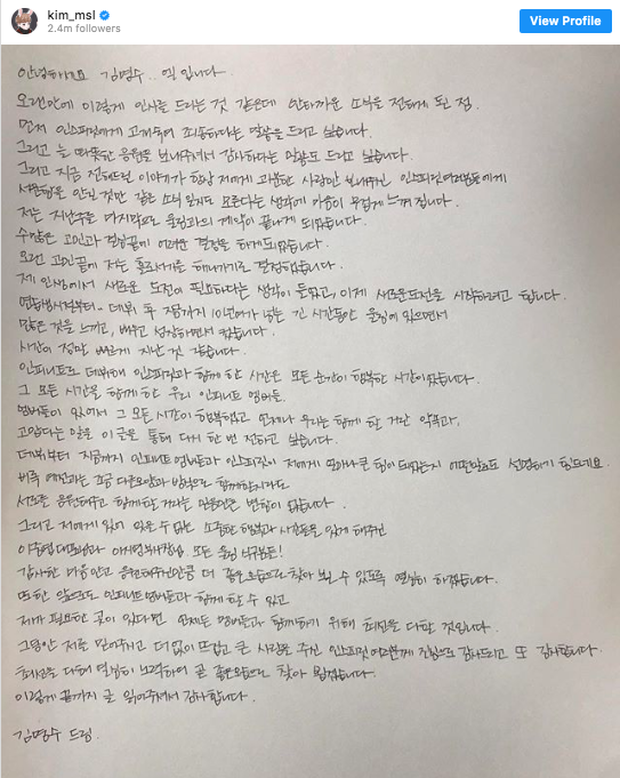 kim_msl
2.4m followers
View Profile
안녕하세요 김명수.. 엘 입니다.
오랜만에 이렇게 인사를 드리는 것 같은데 안타까운 소식을 전하게 된 점.
먼저 인스피릿에게 고개숙여 죄송하다는 말씀을 드리고 싶습니다.
그리고 늘 따뜻한 응원을 보내주셔서 감사하다는 말씀도 드리고 싶습니다.
그리고 지금 전해드릴 이야기가 항상 저에게 과분한 사랑만 보내주신 인스피릿여러분들에게
서운함을 안길 것만 같은 소식 일지도 모른다는 생각에 마음이 무겁게 느껴집니다.
저는 지난주를 마지막으로 울림과의 계약이 끝나게 되었습니다.
수많은 고민과 결심끝에 어려운 결정을 하게되었습니다.
오랜 고민끝에 저는 홀로서기를 해나가기로 결정했습니다.
제 인생에서 새로운 도전이 필요하다는 생각이 들었고, 이제 새로운도전을 시작하려고 합니다.
연습생시절부터.. 데뷔 후 지금까지 10년여가 넘는 긴 시간동안 울림에 있으면서
많은 것을 느끼고, 배우고 성장하면서 컸습니다.
시간이 정말 빠르게 지난 것 같습니다.
인피니트로 데뷔해 인스피릿과 함께 한 시간은 모든 순간이 행복한 시간이었습니다.
그 모든 시간을 함께 한 우리 인피니트 멤버들.
멤버들이 있어서 그 모든 시간이 행복했고 언제나 우리는 함께 할 거란 약속과,
고맙다는 말을 이 글을 통해 다시 한 번 전하고 싶습니다.
데뷔부터 지금까지 인피니트 멤버들과 인스피릿이 저에게 얼마나 큰 힘이 되었는지 어떤말로도 설명하기 힘드네요.
비록 예전과는 조금 다른모양과 방식으로 함께할지라도
서로를 응원해주고 함께할 거라는 믿음만은 변함이 없습니다.
그리고 저에게 있어 잊을 수 없는 소중한 행복과 시간들을 있게 해주신
이중엽대표님과 이지연부사장님. 모든 울림 식구분들!
감사한 마음 안고 응원해주신만큼 더 좋은모습으로 찾아 뵐 수 있도록 열심히 하겠습니다.
또한 앞으로도 인피니트 멤버들과 함께 할 수 있고
제가 필요한 곳이 있다면 언제든 멤버들과 함께하기 위해 최선을 다할 것입니다.
그동안 저를 믿어주시고 더 없이 뜨겁고 큰 사랑을 주신 인스피릿 여러분께 진심으로 감사드리고 또 감사합니다.
최선을 다해 열심히 노력하여 곧 좋은모습으로 찾아 뵙겠습니다.
이렇게 끝까지 글 읽어주셔서 감사합니다.
김명수 드림.